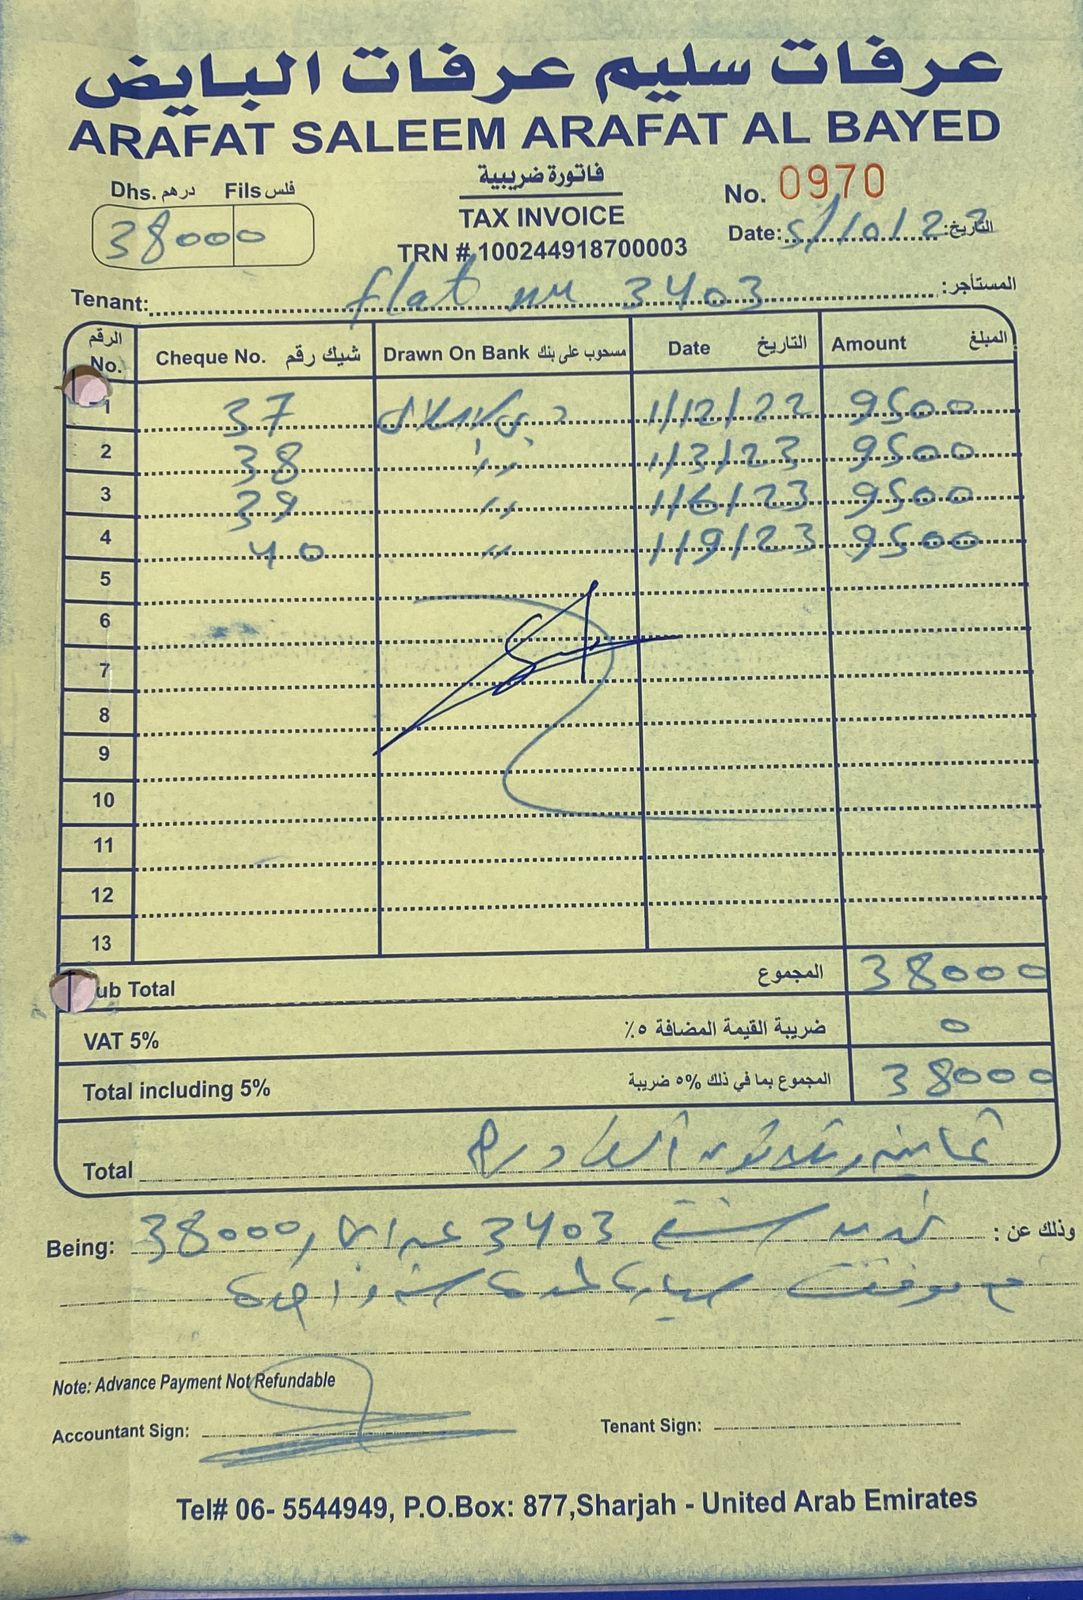 عرفات سليم عرفات البايض
ARAFAT SALEEM ARAFAT AL BAYED
Dhs. درهم Fils فلس
38000
فاتورة ضريبية
TAX INVOICE
TRN # 100244918700003
No. 0970
Date: 5/10/22 التاريخ:
Tenant: flat nr 3403 المستأجر:
الرقم No. Cheque No. شيك رقم Drawn On Bank مسحوب على بنك Date التاريخ Amount المبلغ
1 37 1/12/22 9500
2 38 〃 1/3/23 9500
3 39 〃 1/6/23 9500
4 40 〃 1/9/23 9500
5
6
7
8
9
10
11
12
13
ub Total المجموع 38000
VAT 5% ضريبة القيمة المضافة ٥٪ 0
Total including 5% المجموع بما في ذلك ٥% ضريبة 38000
Total ثمانية وثلاثون الف درهم
Being: تجديد شقة 3403 38000 وذلك عن :
مع موقف سيارة لمدة سنة واحدة
Note: Advance Payment Not Refundable
Accountant Sign: Tenant Sign:
Tel# 06- 5544949, P.O.Box: 877,Sharjah - United Arab Emirates